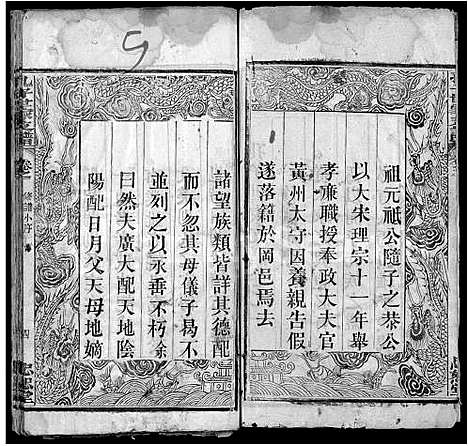 祖元祇公隨子之恭公
以大宋理宗十一年舉
孝亷職授奉政大夫官
黃州太守因養親告假
遂落籍於岡邑焉去
諸望族類皆詳其德配
而不忽其母儀子曷不
並列之以永垂不朽余
曰然夫廣大配天地陰
陽配日月父天母地嫡